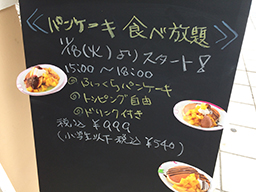 《パンケーキ 食べ放題》
11/8(火)よりスタート!
15:00〜18:00
◎ふっくらパンケーキ
◎トッピング自由
◎ドリンク付き
税込 ¥999
(小学生以下税込 ¥540)